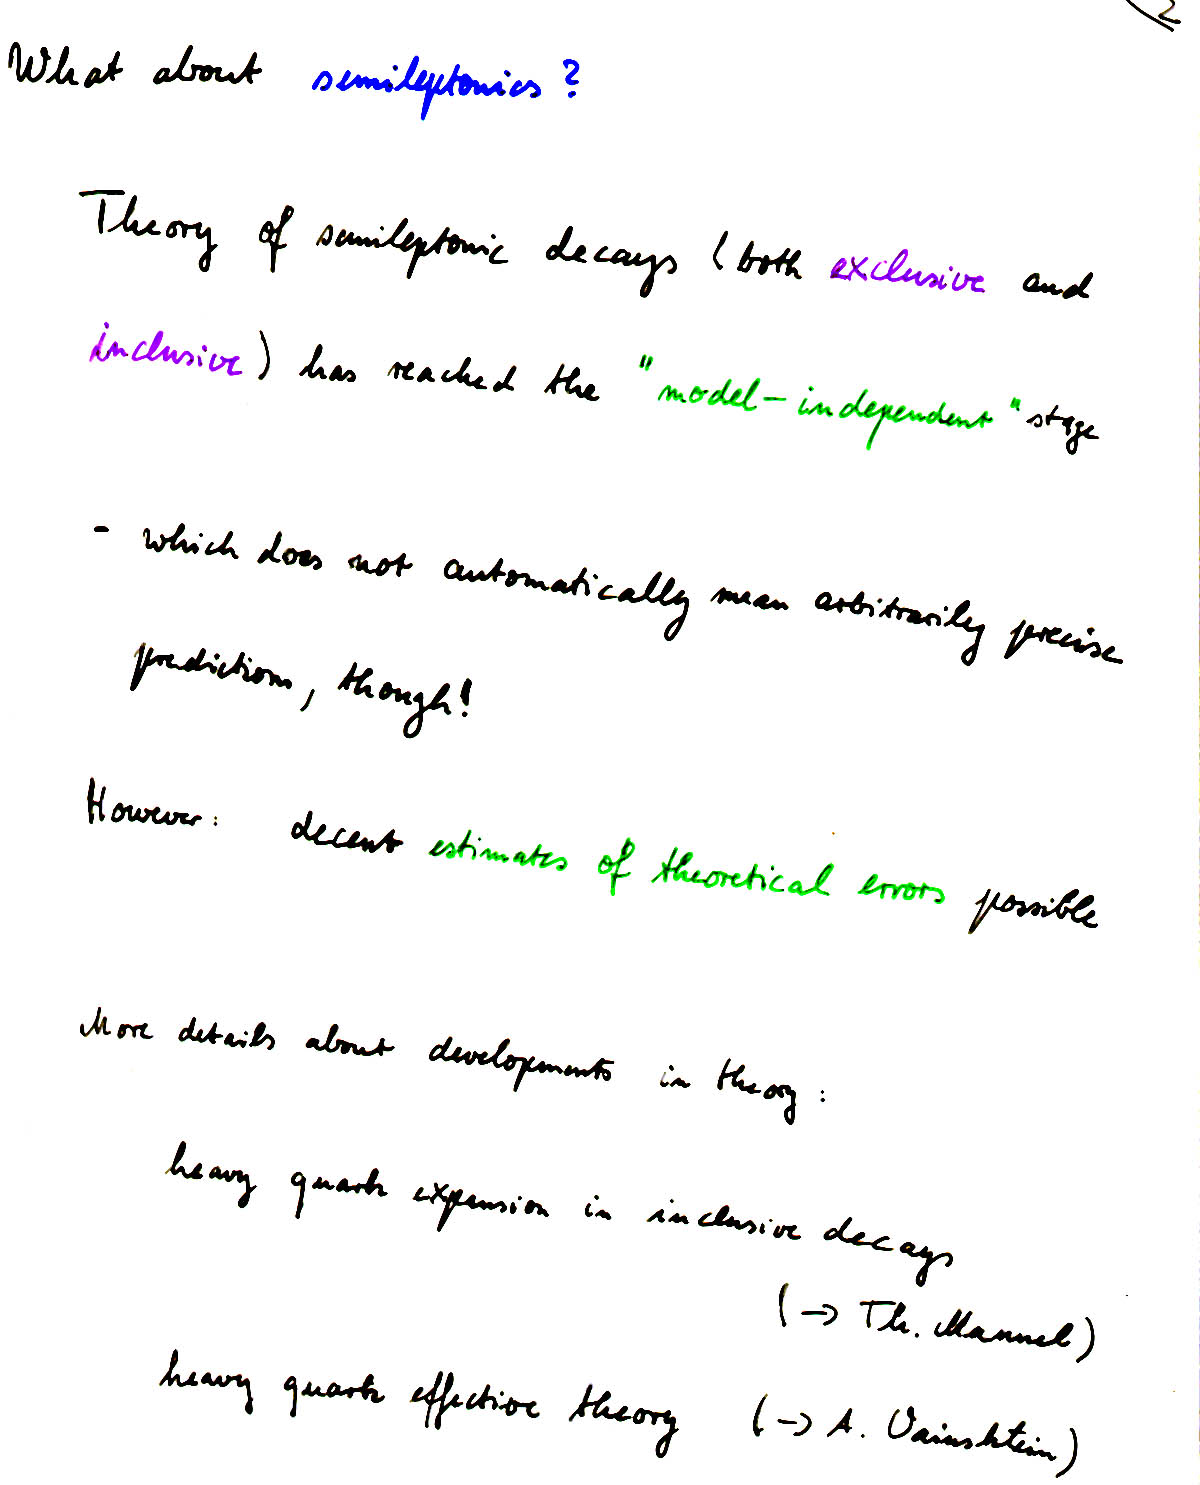 2
What about semileptonics?
Theory of semileptonic decays (both exclusive and
inclusive) has reached the "model-independent" stage
- which does not automatically mean arbitrarily precise
predictions, though!
However: decent estimates of theoretical errors possible
More details about developments in theory:
heavy quark expansion in inclusive decays
(→ Th. Mannel)
heavy quark effective theory (→ A. Vainshtein)